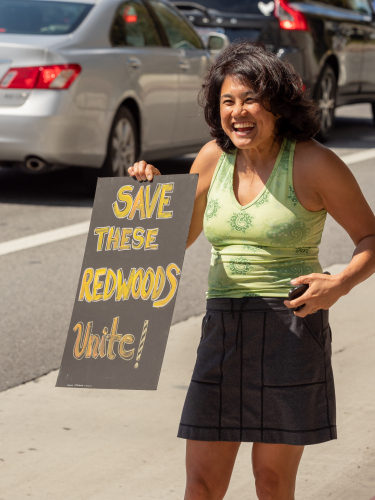 SAVE
THESE
REDWOODS
Unite!